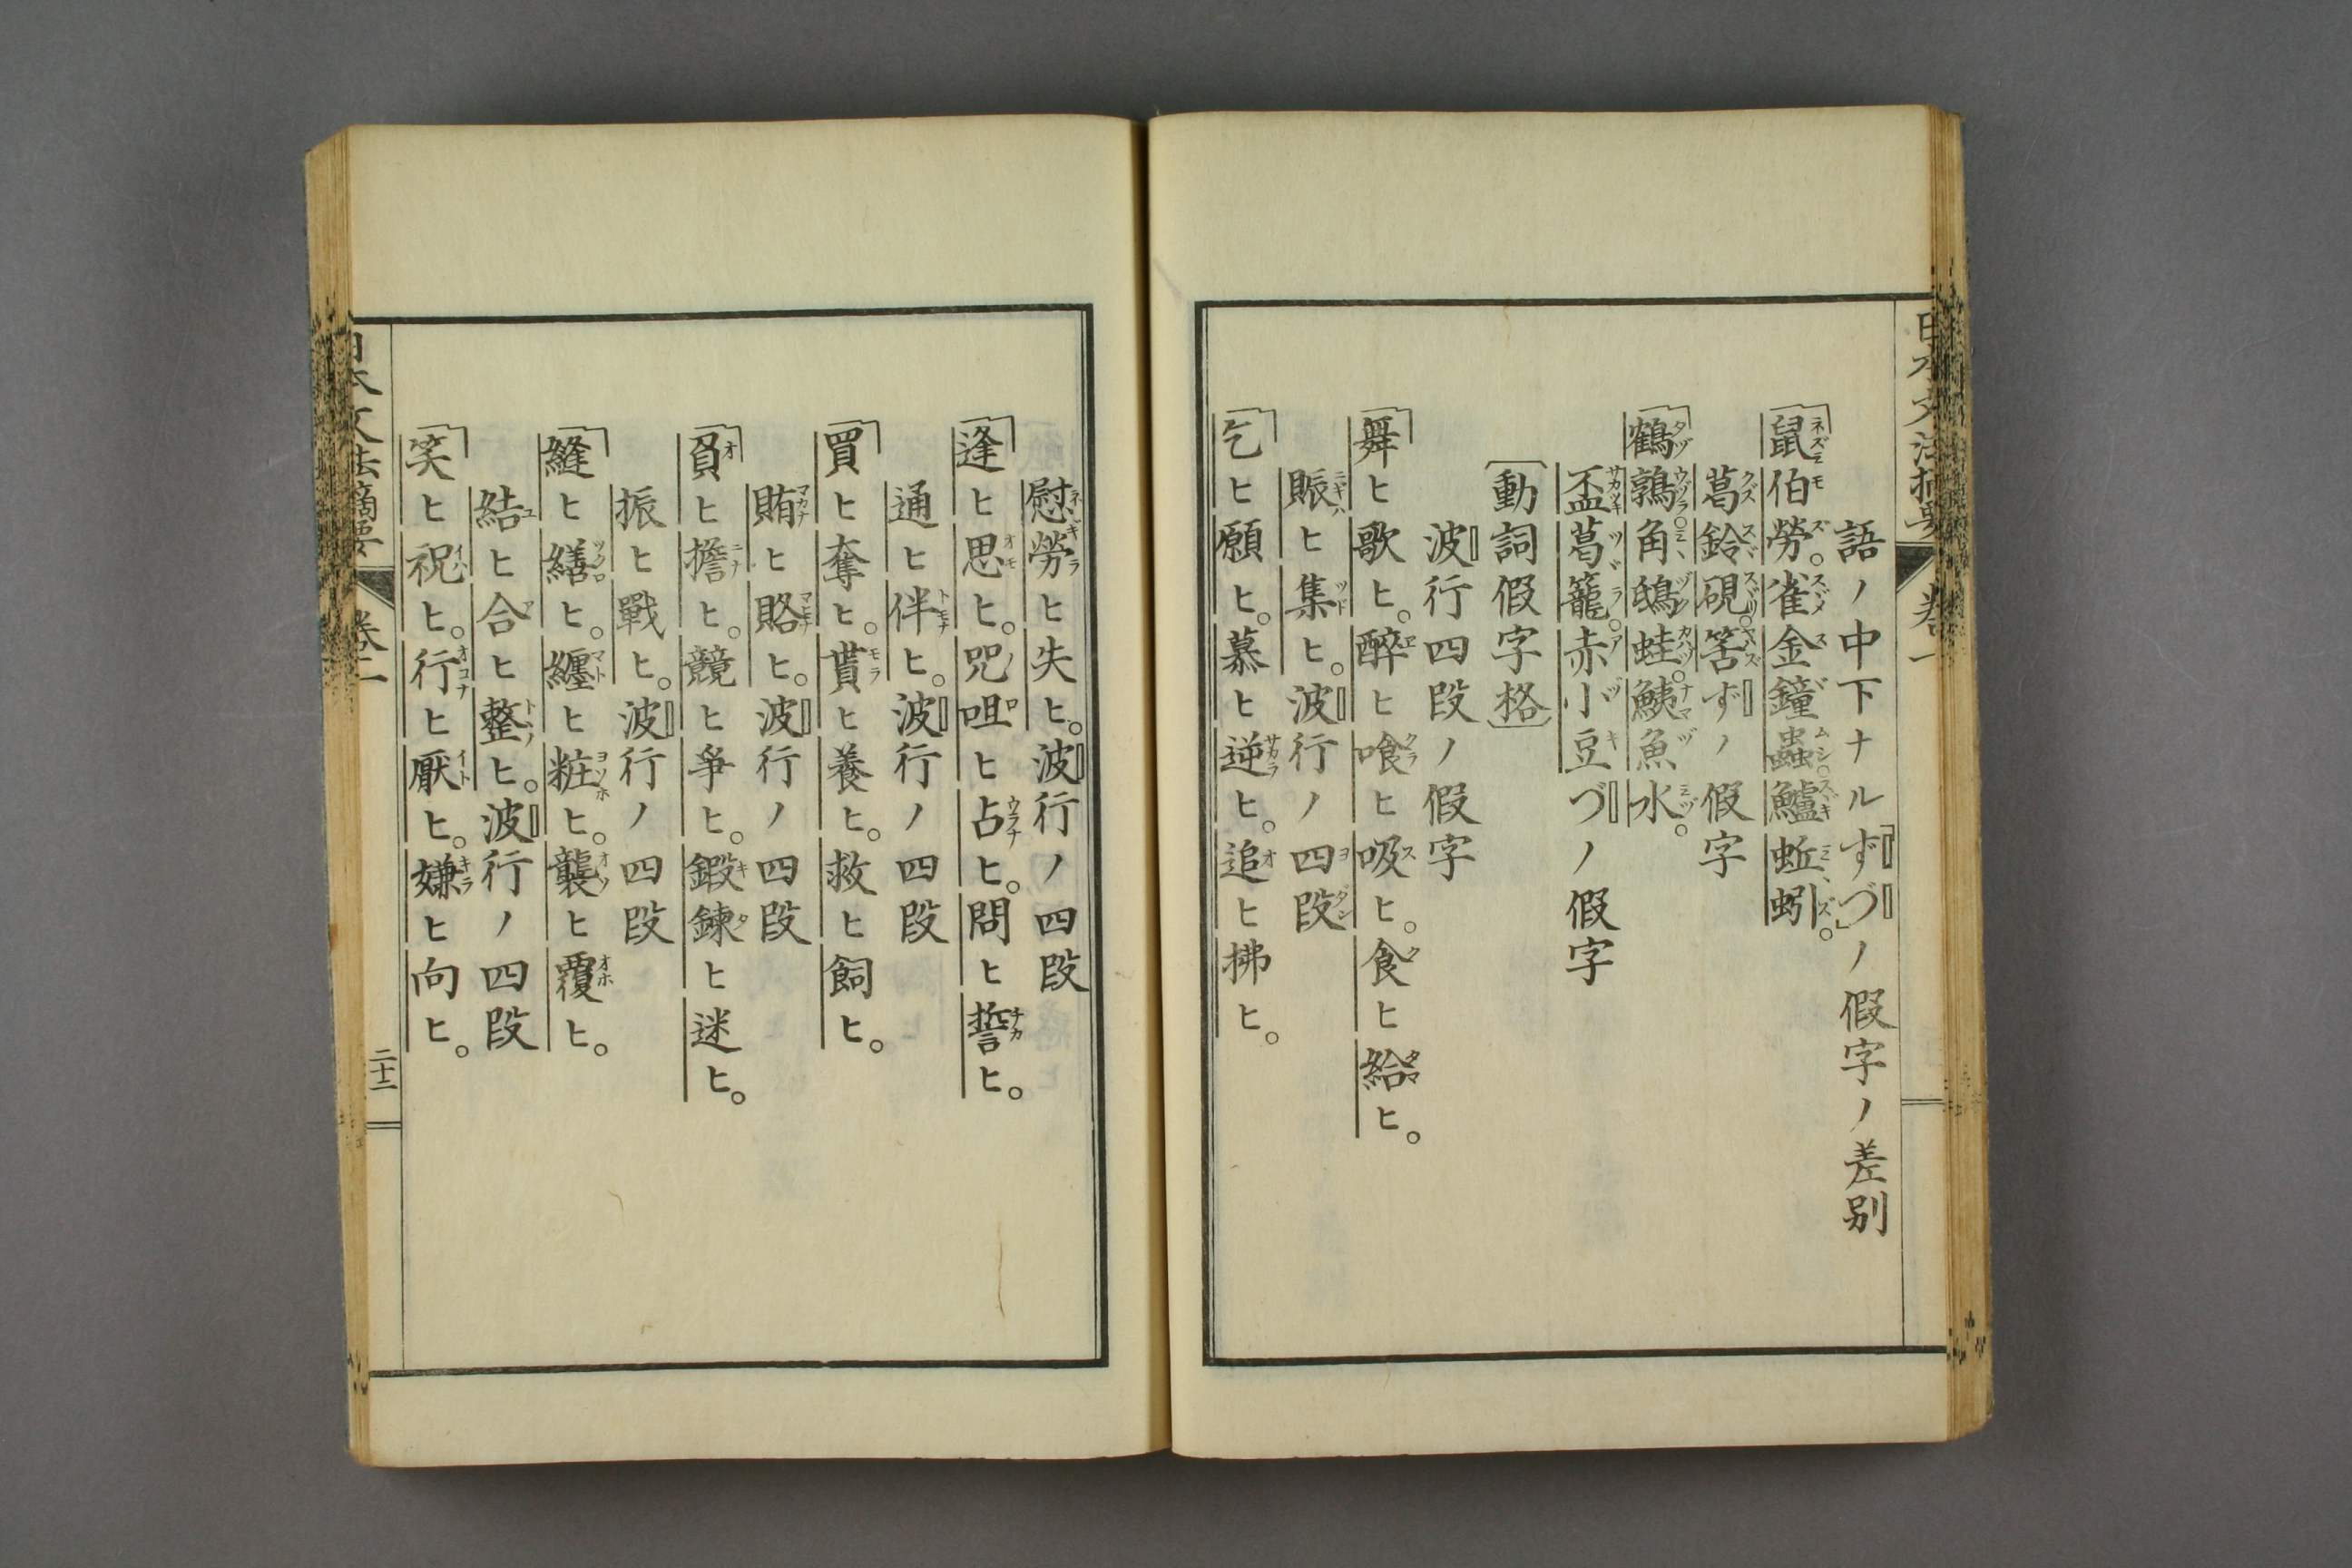 語ノ中下ナル「ずづ」ノ假字ノ差別
鼠伯勞。雀金鐘蟲。鱸蚯蚓。
葛鈴硯。筈ずノ假字
鶴鶉。角鴟蛙。鮧魚水。
盃葛籠。赤小豆づノ假字
動詞假字格
波行四段ノ假字
舞ヒ歌ヒ。醉ヒ喰ヒ吸ヒ。食ヒ給ヒ。
賑ヒ集ヒ。波行ノ四段
乞ヒ願ヒ。慕ヒ逆ヒ。追ヒ拂ヒ。
慰勞ヒ失ヒ。波行ノ四段
逢ヒ思ヒ。咒咀ヒ占ヒ。問ヒ誓ヒ。
通ヒ伴ヒ。波行ノ四段
買ヒ奪ヒ。貰ヒ養ヒ。救ヒ飼ヒ。
賄ヒ賂ヒ。波行ノ四段
負ヒ擔ヒ。競ヒ爭ヒ。鍛鍊ヒ迷ヒ。
振ヒ戰ヒ。波行ノ四段
縫ヒ繕ヒ。纏ヒ粧ヒ。襲ヒ覆ヒ。
結ヒ合ヒ整ヒ。波行ノ四段
笑ヒ祝ヒ。行ヒ厭ヒ。嫌ヒ向ヒ。
日本文法摘要 卷二 二十二